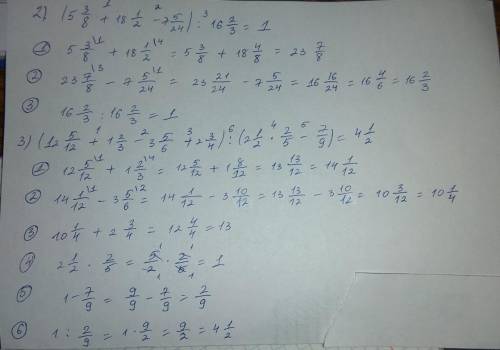 2) (5 3/8 +¹ 18 1/2 -² 7 5/24) :³ 16 2/3 = 1
① 5 3/8\1 + 18 1/2\4 = 5 3/8 + 18 4/8 = 23 7/8
② 23 7/8\3 - 7 5/24\1 = 23 21/24 - 7 5/24 = 16 16/24 = 16 4/6 = 16 2/3
③ 16 2/3 : 16 2/3 = 1
3) (12 5/12 +¹ 1 2/3 -² 3 5/6 +³ 2 3/4) :⁶ (2 1/2 ·⁴ 2/5 -⁵ 7/9) = 4 1/2
① 12 5/12\1 + 1 2/3\4 = 12 5/12 + 1 8/12 = 13 13/12 = 14 1/12
② 14 1/12\1 - 3 5/6\2 = 14 1/12 - 3 10/12 = 13 13/12 - 3 10/12 = 10 3/12 = 10 1/4
③ 10 1/4 + 2 3/4 = 12 4/4 = 13
④ 2 1/2 · 2/5 = 5/2 · 2/5 = 1
⑤ 1 - 7/9 = 9/9 - 7/9 = 2/9
⑥ 1 : 2/9 = 1 · 9/2 = 9/2 = 4 1/2